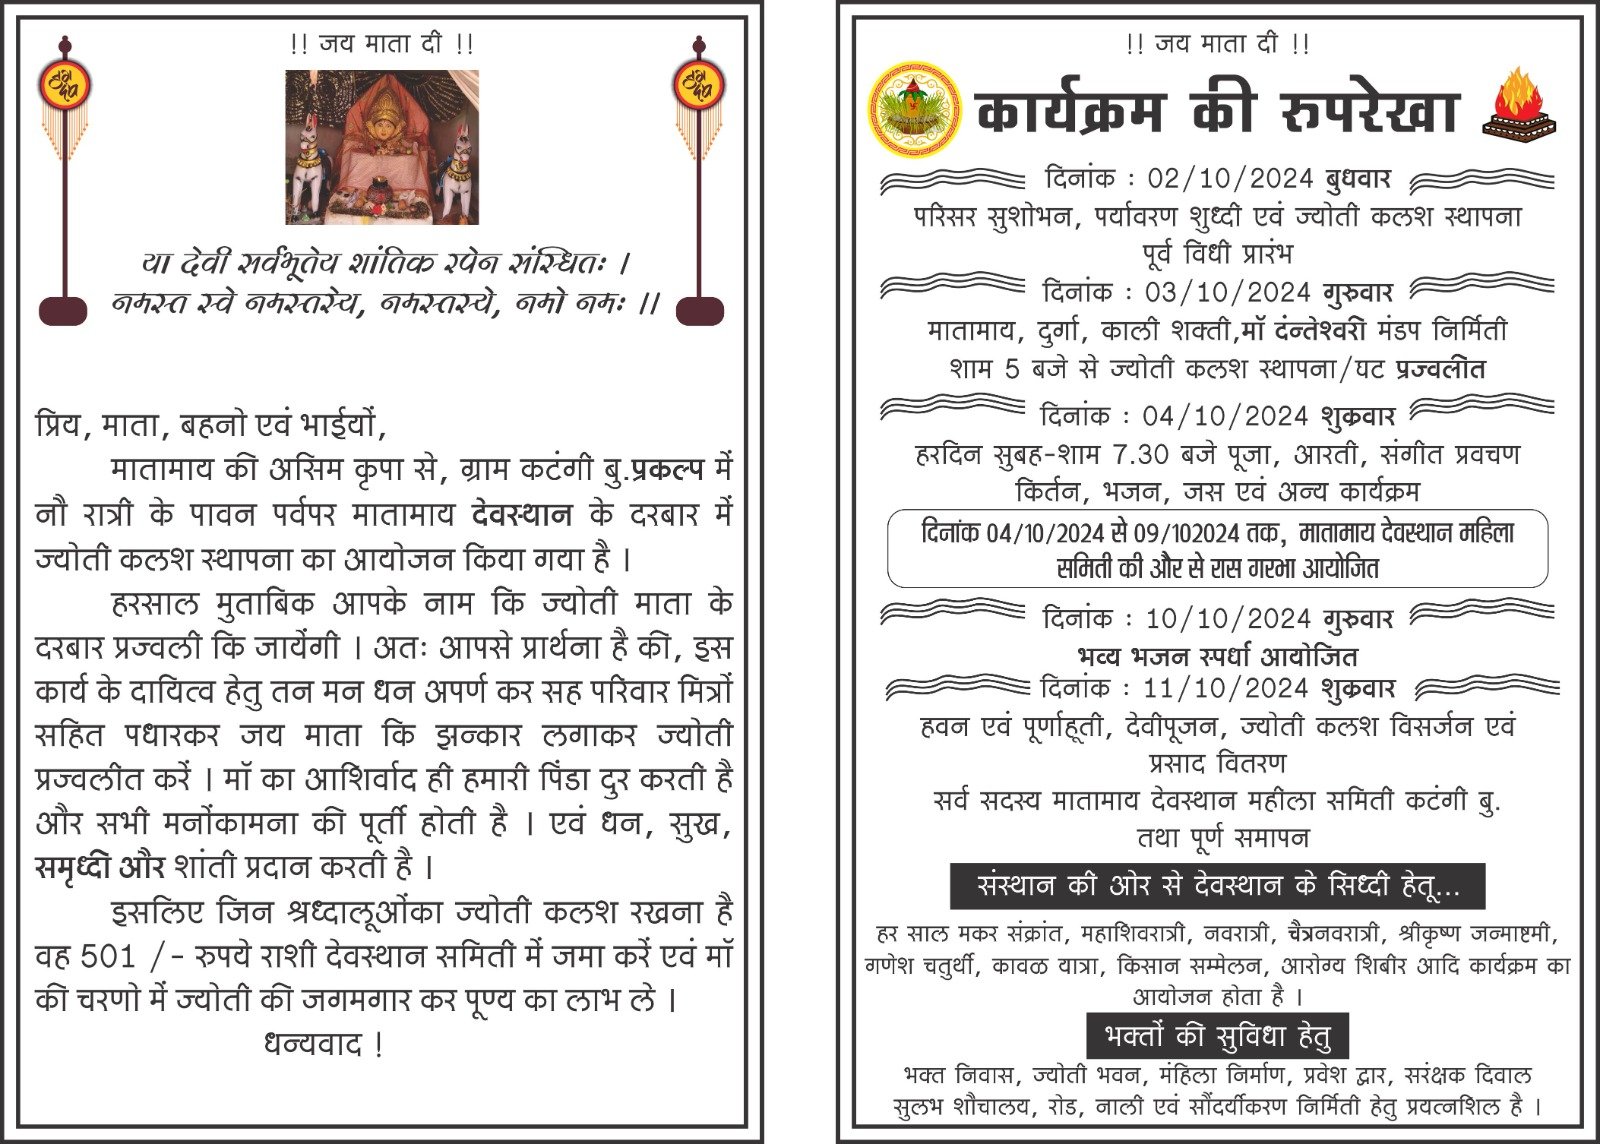 !! जय माता दी !!
या देवी सर्वभूतेय शांतिक रुपेन संस्थितः ।
नमस्त स्वे नमस्तस्ये, नमस्तस्ये, नमो नमः ।।
प्रिय, माता, बहनो एवं भाईयों,
मातामाय की असिम कृपा से, ग्राम कटंगी बु.प्रकल्प में
नौ रात्री के पावन पर्वपर मातामाय देवस्थान के दरबार में
ज्योती कलश स्थापना का आयोजन किया गया है ।
हरसाल मुताबिक आपके नाम कि ज्योती माता के
दरबार प्रज्वली कि जायेंगी । अतः आपसे प्रार्थना है की, इस
कार्य के दायित्व हेतु तन मन धन अपर्ण कर सह परिवार मित्रों
सहित पधारकर जय माता कि झन्कार लगाकर ज्योती
प्रज्वलीत करें । मॉ का आशिर्वाद ही हमारी पिंडा दुर करती है
और सभी मनोंकामना की पूर्ती होती है । एवं धन, सुख,
समृध्दी और शांती प्रदान करती है ।
इसलिए जिन श्रध्दालूओंका ज्योती कलश रखना है
वह 501 /- रुपये राशी देवस्थान समिती में जमा करें एवं मॉ
की चरणो में ज्योती की जगमगार कर पूण्य का लाभ ले ।
धन्यवाद !
!! जय माता दी !!
कार्यक्रम की रुपरेखा
दिनांक : 02/10/2024 बुधवार
परिसर सुशोभन, पर्यावरण शुध्दी एवं ज्योती कलश स्थापना
पूर्व विधी प्रारंभ
दिनांक : 03/10/2024 गुरुवार
मातामाय, दुर्गा, काली शक्ती,मॉ दंन्तेश्वरी मंडप निर्मिती
शाम 5 बजे से ज्योती कलश स्थापना/घट प्रज्वलीत
दिनांक : 04/10/2024 शुक्रवार
हरदिन सुबह-शाम 7.30 बजे पूजा, आरती, संगीत प्रवचण
किर्तन, भजन, जस एवं अन्य कार्यक्रम
दिनांक 04/10/2024 से 09/102024 तक, मातामाय देवस्थान महिला
समिती की और से रास गरभा आयोजित
दिनांक : 10/10/2024 गुरुवार
भव्य भजन स्पर्धा आयोजित
दिनांक : 11/10/2024 शुक्रवार
हवन एवं पूर्णाहूती, देवीपूजन, ज्योती कलश विसर्जन एवं
प्रसाद वितरण
सर्व सदस्य मातामाय देवस्थान महीला समिती कटंगी बु.
तथा पूर्ण समापन
संस्थान की ओर से देवस्थान के सिध्दी हेतू...
हर साल मकर संक्रांत, महाशिवरात्री, नवरात्री, चैत्रनवरात्री, श्रीकृष्ण जन्माष्टमी,
गणेश चतुर्थी, कावळ यात्रा, किसान सम्मेलन, आरोग्य शिबीर आदि कार्यक्रम का
आयोजन होता है ।
भक्तों की सुविधा हेतु
भक्त निवास, ज्योती भवन, मंहिला निर्माण, प्रवेश द्वार, सरंक्षक दिवाल
सुलभ शौचालय, रोड, नाली एवं सौंदर्यीकरण निर्मिती हेतु प्रयत्नशिल है ।